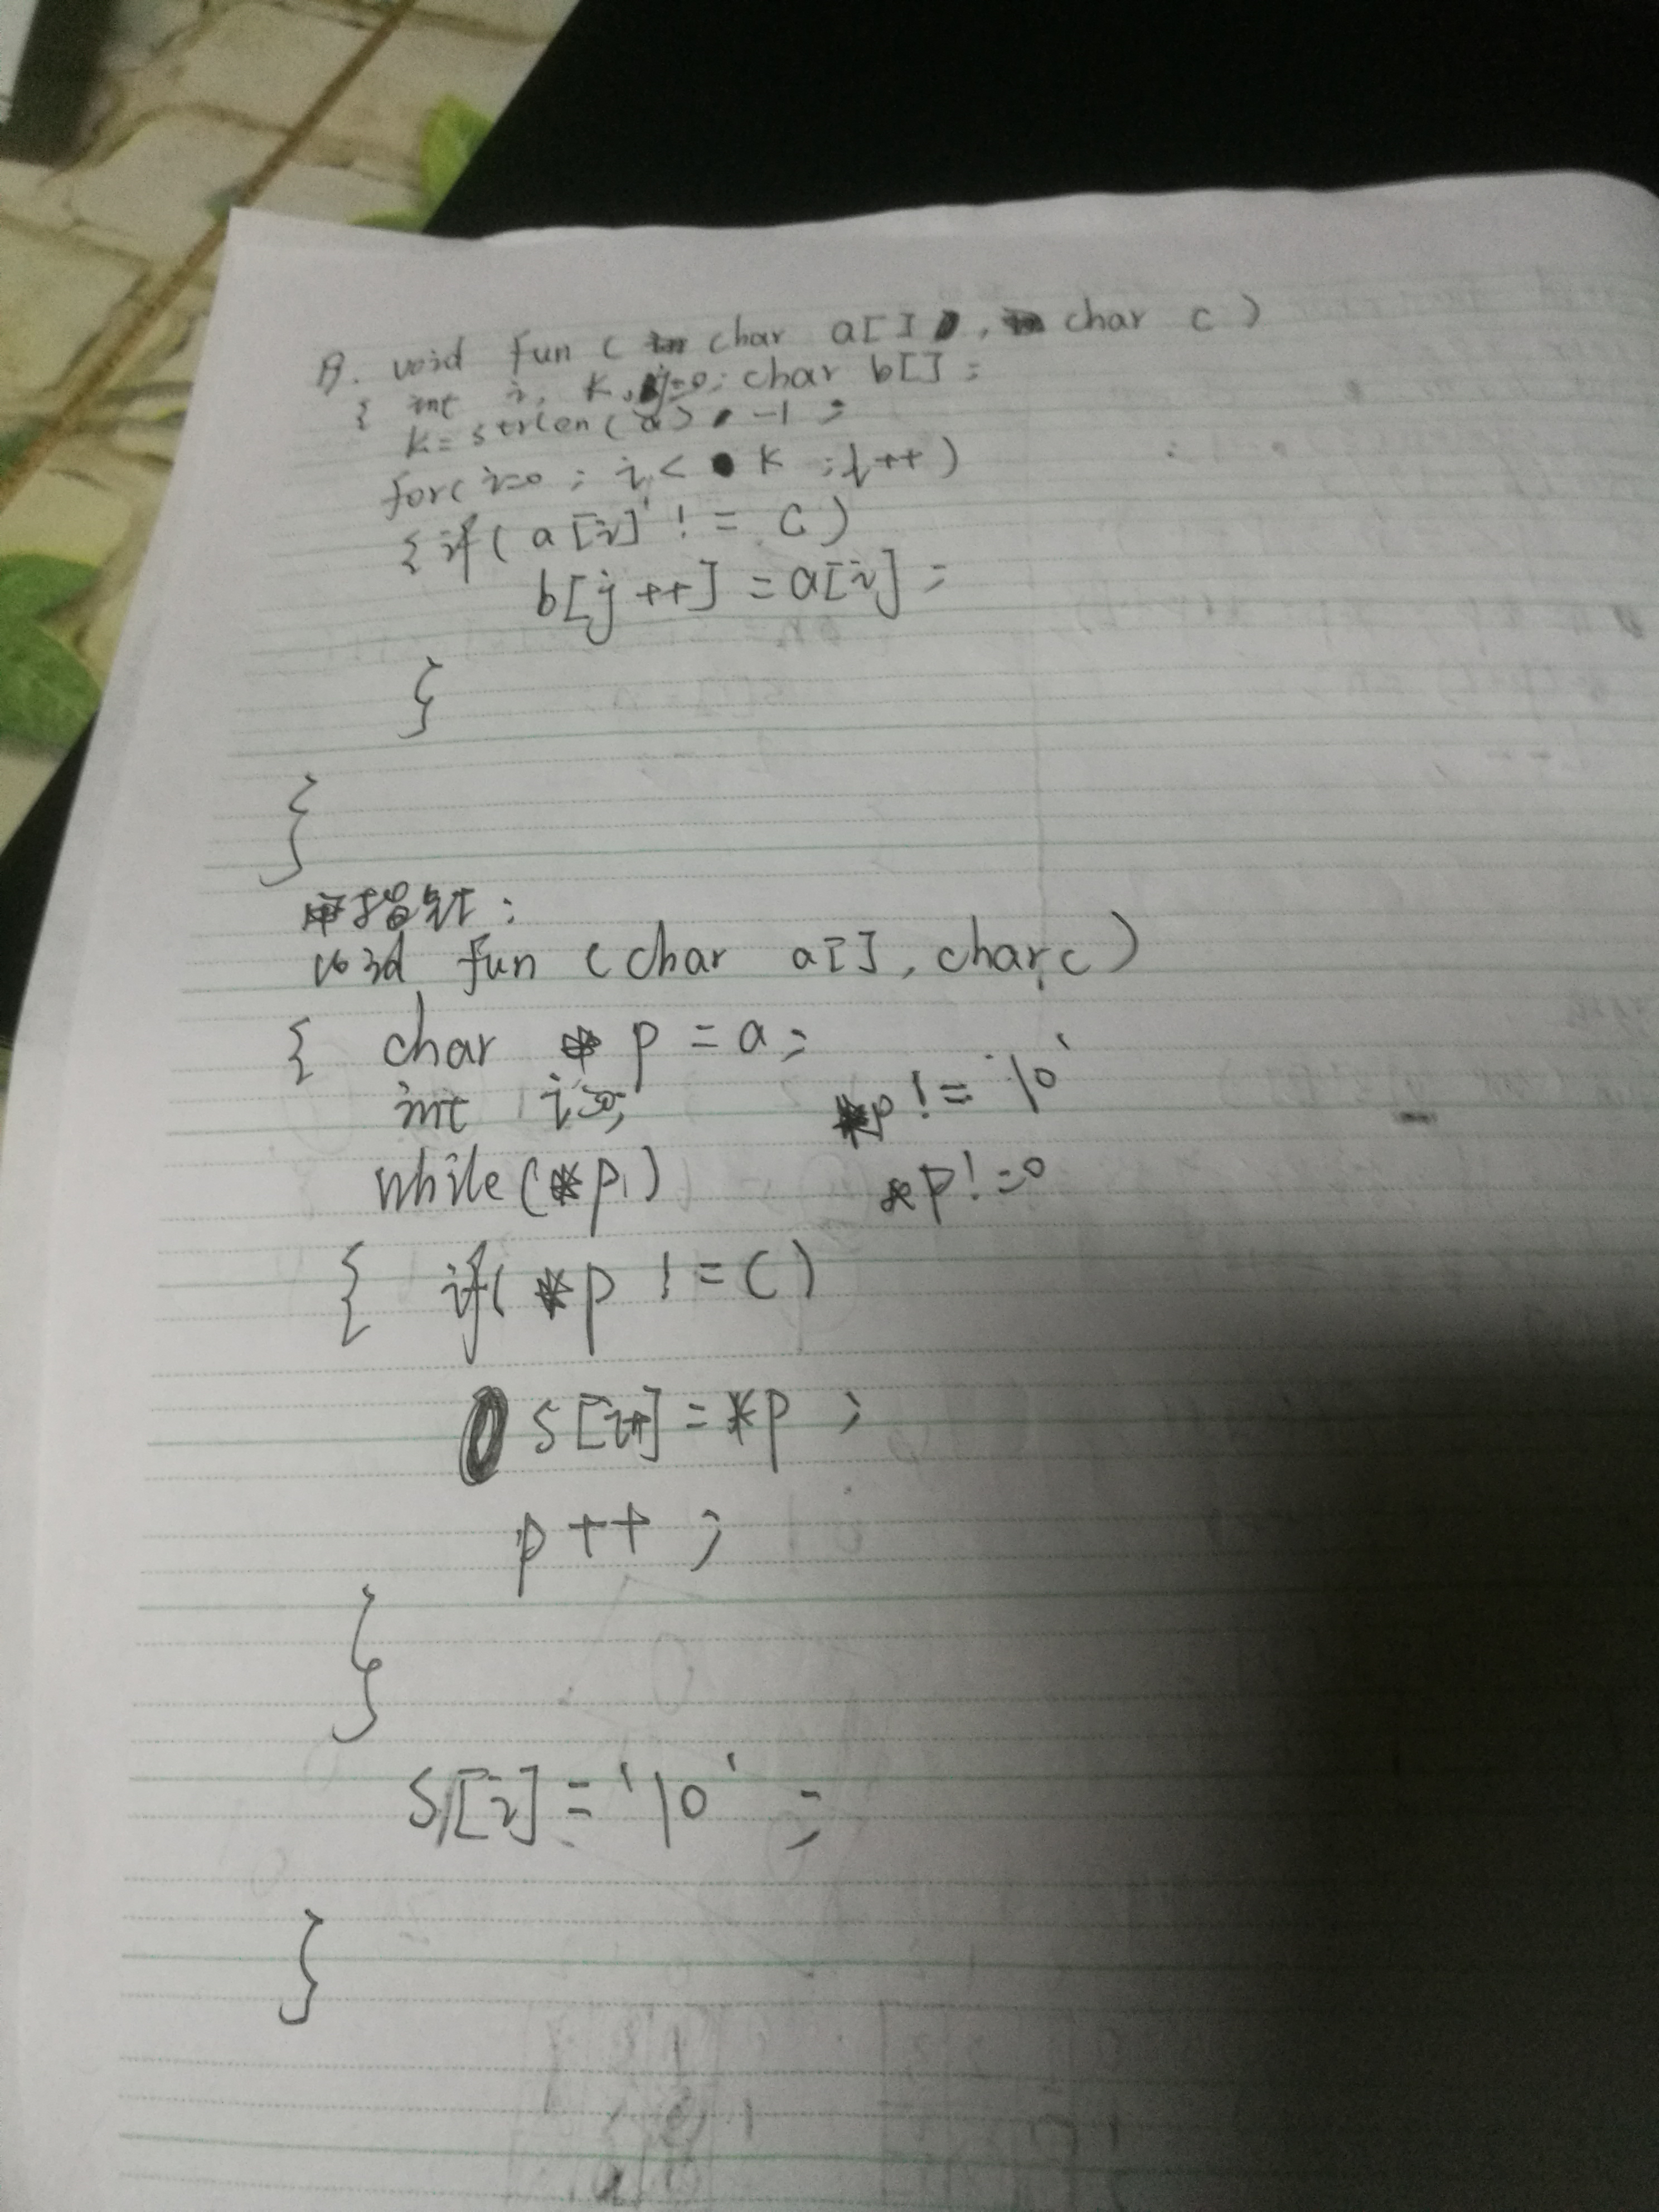 A. void fun ( char a[] , char c )
{ int i, k, j=0; char b[] ;
k = strlen(a) -1 ;
for( i=0 ; i < k ; i++ )
{ if( a[i] != c )
b[j++] = a[i] ;
}
}
用指针:
void fun ( char a[], char c )
{ char * p = a ;
int i=0; *p != '\0'
while(*p) *p!=0
{ if( *p != c )
s[i++] = *p ;
p++ ;
}
s[i] = '\0' ;
}